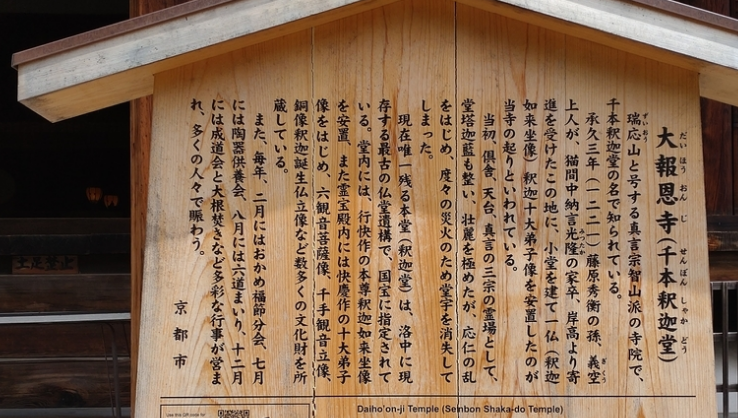 大報恩寺(千本釈迦堂)
だいほうおんじ せんぼんしゃかどう
瑞応山と号する真言宗智山派の寺院で、
ずいおう
千本釈迦堂の名で知られている。
承久三年(一二二一)藤原秀衡の孫、義空
ぎくう
上人が、猫間中納言光隆の家卒、岸高より寄
みつたか
進を受けたこの地に、小堂を建て一仏(釈迦
如来坐像)釈迦十大弟子像を安置したのが
当寺の起りといわれている。
当初、倶舎、天台、真言の三宗の霊場として、
堂塔伽藍も整い、壮麗を極めたが、応仁の乱
をはじめ、度々の災火のため堂宇を消失して
しまった。
現在唯一残る本堂(釈迦堂)は、洛中に現
存する最古の仏堂遺構で、国宝に指定されて
いる。堂内には、行快作の本尊釈迦如来坐像
を安置、また霊宝殿内には快慶作の十大弟子
像をはじめ、六観音菩薩像、千手観音立像、
銅像釈迦誕生仏立像など数多くの文化財を所
蔵している。
また、毎年、二月にはおかめ福節分会、七月
には陶器供養会、八月には六道まいり、十二月
には成道会と大根焚きなど多彩な行事が営ま
れ、多くの人々で賑わう。
京都市
土足禁止
Daiho'on-ji Temple (Sembon Shaka-do Temple)
Use this QR code for